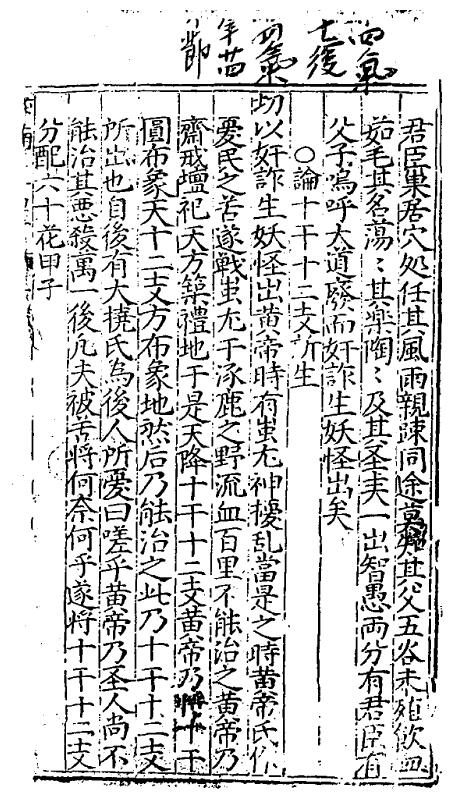 四氣
七十二候
四氣
年廿
節
君臣巢居穴処任其風雨親踈同途莫知其父五谷未殖飲血
茹毛其名蕩〻其樂陶〻及其圣夫一出智愚两分有君臣有
父子嗚呼大道廢而奸詐生妖怪出矣
○論十干十二支所生
切以奸詐生妖怪出黄帝時有蚩尤神擾乱當是之時黄帝氏
憂民之苦遂戰蚩尤于涿鹿之野流血百里不能治之黄帝乃
齋戒壇祀天方築禮地于是天降十干十二支黄帝乃將十干
圓布象天十二支方布象地然后乃能治之此乃十干十二支
所出也自後有大撓氏為後人所憂曰嗟乎黄帝乃圣人尚不
能治其悪殺萬一後凡夫被苦將何奈何乎遂將十干十二支
分配六十花甲子